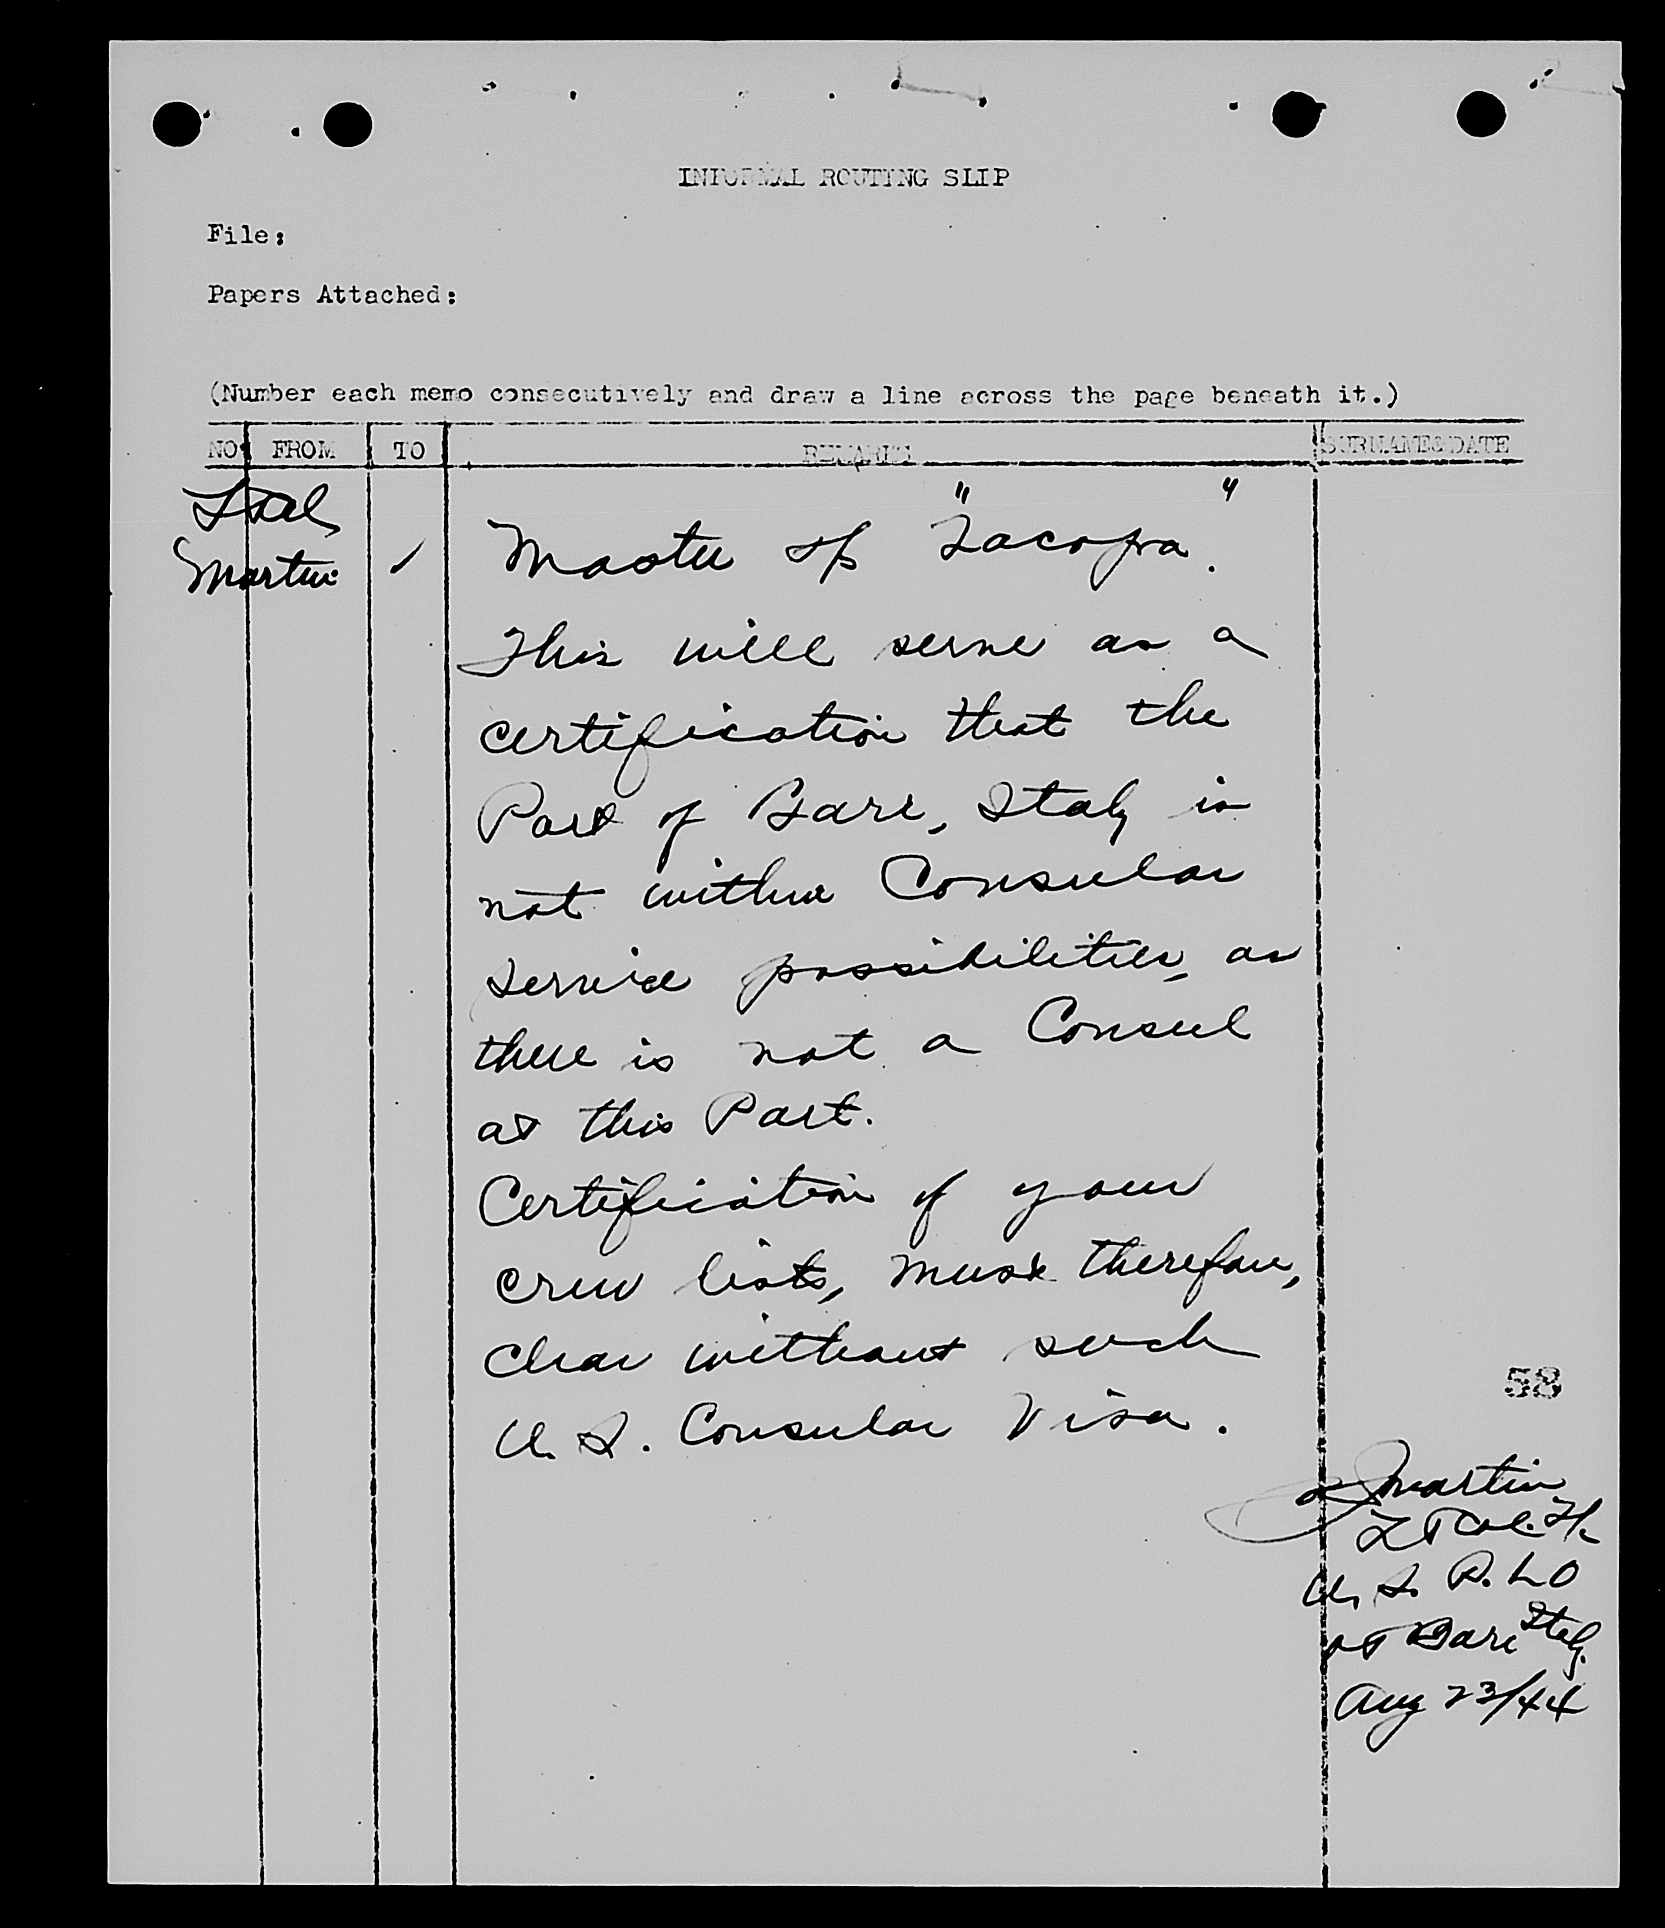 INFORMAL ROUTING SLIP
File:
Papers Attached:
(Number each memo consecutively and draw a line across the page beneath it.)
NO. FROM TO REMARKS SURNAME&DATE
Lt Col
Martin
Master of "Zacopa".
This will serve as a
certification that the
Port of Bari, Italy is
not within Consular
Service possibilities, as
there is not a Consul
at this Port.
Certification of your
crew lists, must therefore,
clear without such
U.S. Consular Visa.
58
Martin
Lt Col.
U.S. P.L.O
at Bari Italy
Aug 23/44